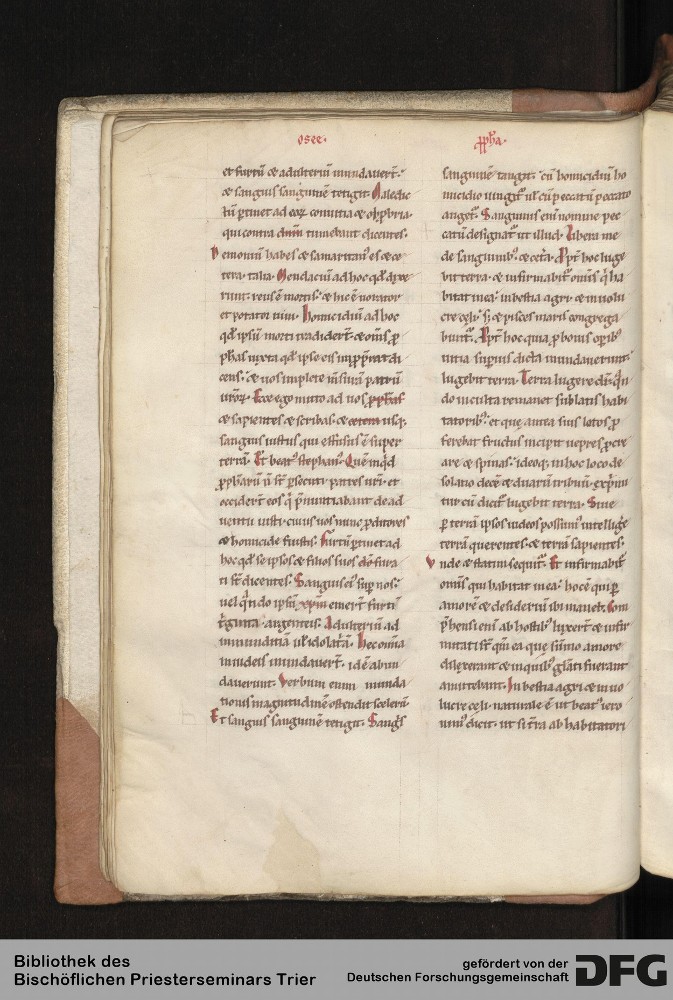 osee· ꝓph̄a·
et furtū & adulteriū inundauert̄·
& sanguis sanguinē tetigit· Maledic
tū ꝑtinet ad eoꝝ conuitia & obꝓbria·
qui contra dn̄m tumebant dicentes·
Demoniū habes & samaritan᾽ es & ce
tera talia· Mendaciū ad hoc qd̓ dixe
runt·
et potator uini· Homicidiū ad hoc
qd̓ ipsū morti tradidert̄· & om̄s ꝓ
ph̄as iuxta qd̓ ipse eis
cens· & uos implete m̄surā patrū
ur̄oꝝ· Ecce ego mitto ad uos ꝓph̄as
& sapientes & scribas· & cetera usq;
sanguis iustus qui effusus ē super
terrā· Et beat᾽ stephan᾽· Quē inq̓d
ꝓph̄arū n̄ st̄ ꝑsecuti patres ur̄i· et
occidert̄ eos q̓ p̄nuntiabant de ad
uentu iusti· cuius uos nunc ꝓditores
& homicide fuistis· Furtū ꝑtinet ad
hoc qd̓ se ipsos & filios suos
ti st̄ dicentes· Sanguis ei᾽ suꝑ nos·
uel q̓ndo ipsū xp̄m emert̄
t̓ginta argenteis· Adulteriū ad
inmunditiā ul̓ idolat̓ā· Hec om̄ia
in iudeis inundauert̄· idē abun
dauerunt· Verbum enim inunda
tionis magnitudinē ostendit scelerū·
Et sanguis sanguinē tetigit· Sangs̓
sanguinē tangit· cū homicidiū ho
micidio iungit᾽ ul̓ cū peccatū peccato
auget᾽· Sanguinis eni nomine pec
catū designat᾽ ut illud· Libera me
de sanguinib᾽· & cet̓a· Ꝓpt̓ hoc luge
bit terra· & infirmabit᾽ om̄is q̓ ha
bitat in ea· in bestia agri· & in uolu
cre cęli· s; & pisces maris congrega
bunt᾽· Ꝓpt̓ hoc quia ꝓ bonis opib᾽
uitia supius dicta inundauerunt·
lugebit terra· Terra lugere dr̄· q̓n
do inculta remanet sublatis habi
tatorib᾽· et quę antea suis lotos ꝓ
ferebat fructus incipit uepres ꝓcre
are & spinas· ideoq; in hoc loco de
solatio decē & duarū tribuū exp̓mi
tur cū dicit᾽ lugebit terra· Siue
ꝑ terrā ipsos iudeos possum᾽ intellige̓
terrā querentes· & terrā sapientes·
Vnde & statim sequit᾽· Et infirmabit᾽
omis qui habitat in ea· hoc ē qui ꝑ
amorē & desideriū ibi manet· Com
p̓hensi eni ab hostib᾽ luxert̄ & infir
mitati st̄ qm̄ ea que sūmo amore
dilexerant & in quib᾽ gl̓ati fuerant
amittebant· In bestia agri & in uo
lucre cęli· naturale ē ut beat᾽ iero
nim᾽ dicit· ut si t̓ra ab habitatori
Bibliothek des
Bischöflichen Priesterseminars Trier
gefördert von der
Deutschen Forschungsgemeinschaft
DFG